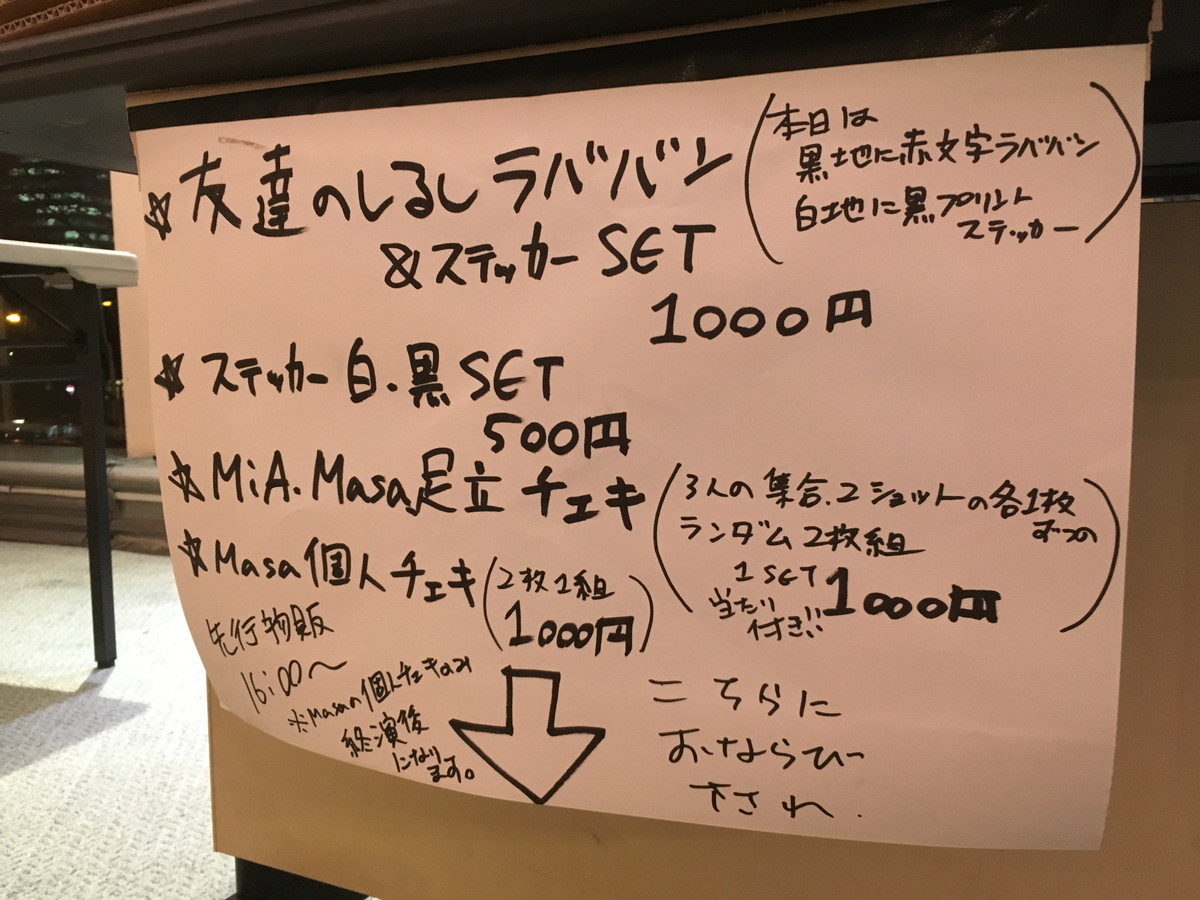 ☆友達のしるしラババン
&ステッカーSET
1000円
(本日は
黒地に赤文字ラババン
白地に黒プリント
ステッカー)
☆ステッカー白.黒SET
500円
☆MiA.Masa足立チェキ
(3人の集合.2ショットの各1枚
ずつの
ランダム2枚組
1SET 1000円
当たり
付き!!)
☆Masa個人チェキ
(2枚1組
1000円)
先行物販
16:00〜
※Masaの個人チェキのみ
終演後
になり
ます。
こちらに
おならび
下され.